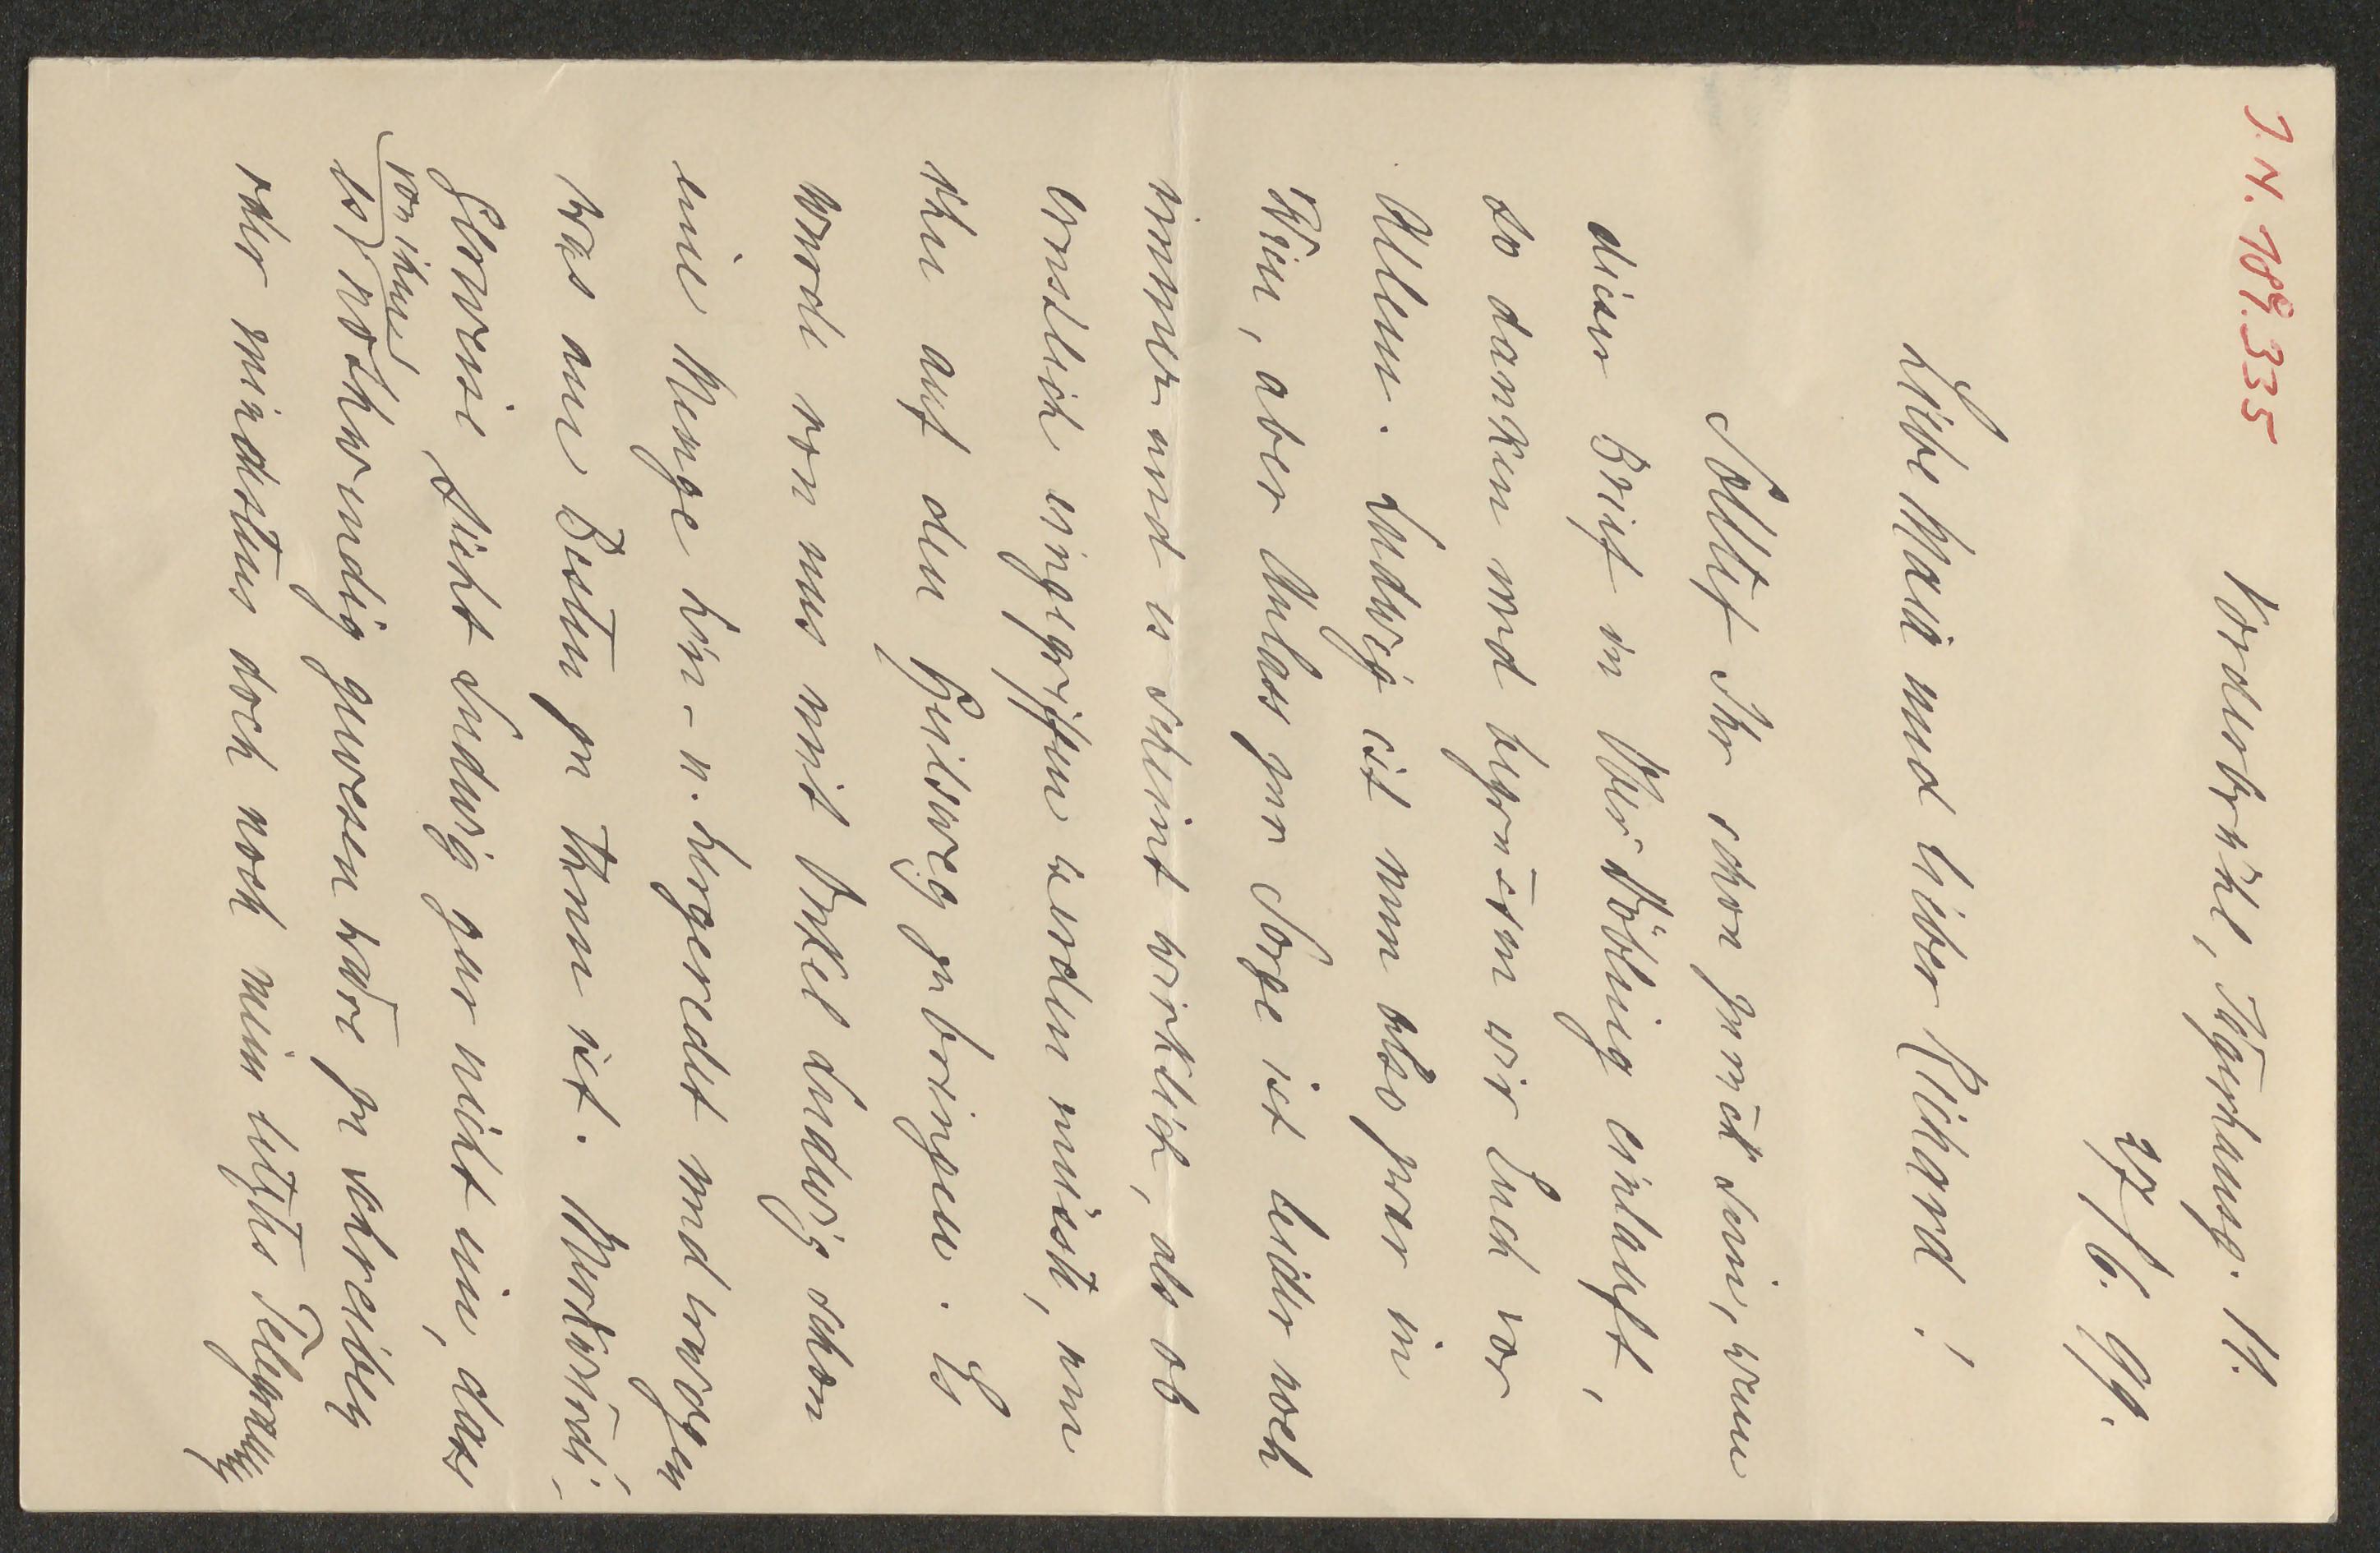 J. N. 189.335
Vorderbrühl, Jägerhausg. 11.
27/6. 99.
Liebe Marie und lieber Richard!
Solltet Ihr schon zurück sein, wenn
dieser Brief in Ober Döbling einlauft,
so danken und begrüssen wir Euch vor
Allem. Ludwig ist nun also zwar in
Wien, aber Anlass zur Sorge ist leider noch
immer und es scheint wirklich, als ob
ernstlich eingegriffen werden müsste, um
ihn auf den Heilsweg zu bringen. Es
wurde von uns mit Onkel Ludwig schon
eine Menge hin- u. hergeredet und erwogen
was am Besten zu thun ist. Merkwürdi-
gerweise sieht Ludwig gar nicht ein, dass
von ihm
es nothwendig gewesen wäre zu schreiben
oder mindestens doch noch mein letztes Telegramm